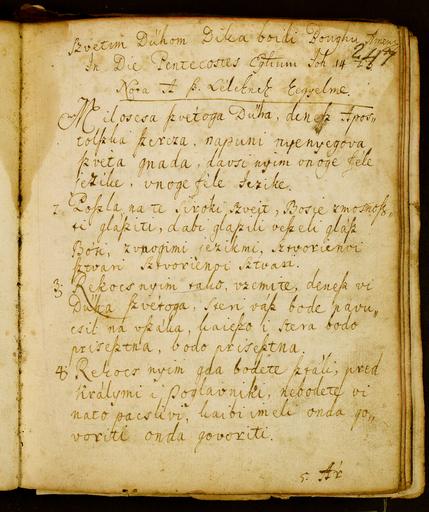 Szvetim Dühom Dika boidi Boughu Amen
247
In Die Pentecostes Joh 14
Nota A
Milosesa szvétoga Düha, denesz Apos-
tolszka szercza, napuni nyenyegova
szveta gnada, davsi nyim onoge fele
jezike, vnoge fele Jezike.
2. Poszla na te siroki szveit, Bosje zmosnosz-
ti glásziti, dabi glaszili veszeli glász
Bosi, z vnogimi jezikmi, sztvorienoi
sztvari sztvorienoi sztvari.
3. Rekocs nyim tako, vzemite, denesz vi
Düha szvétoga, steri vász bode navu-
csil na vszáka, kaieszo i stera bodo
prisesztna, bodo prisesztna.
4. Rekocs nyim gda bodete stáli, pred
királymi i Poglavniki, nebodete vi
nato pacslivi, kaibi imeli onda go-
voriti onda govoriti.
5. Ár